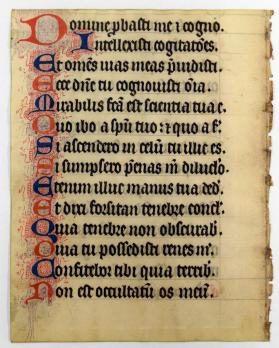 Domine ꝓbasti me ⁊ cogno.
Intellexisti cogitatōes.
Et om̄es uias meas p̄uidisti.
Ecce dn̄e tu cognouisti oīa.
Mirabilis fc̄a est scientia tua e.
Quo ibo a spū tuo: ⁊ quo a f.
Si ascendero in celū tu illic es.
Si sumpsero pēnas m̄ diluclo.
Etenim illuc manus tua ded.
Et dixi forsitan tenebre concl.
Quia tenebre non obscurab.
Quia tu possedisti renes m̄.
Confitebor tibi quia terrib.
Non est occultatū os meū.